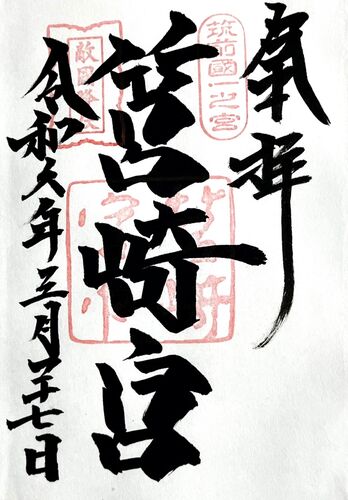 奉拝
筑前國一之宮
筥崎宮
敵国降伏
令和六年三月二十七日